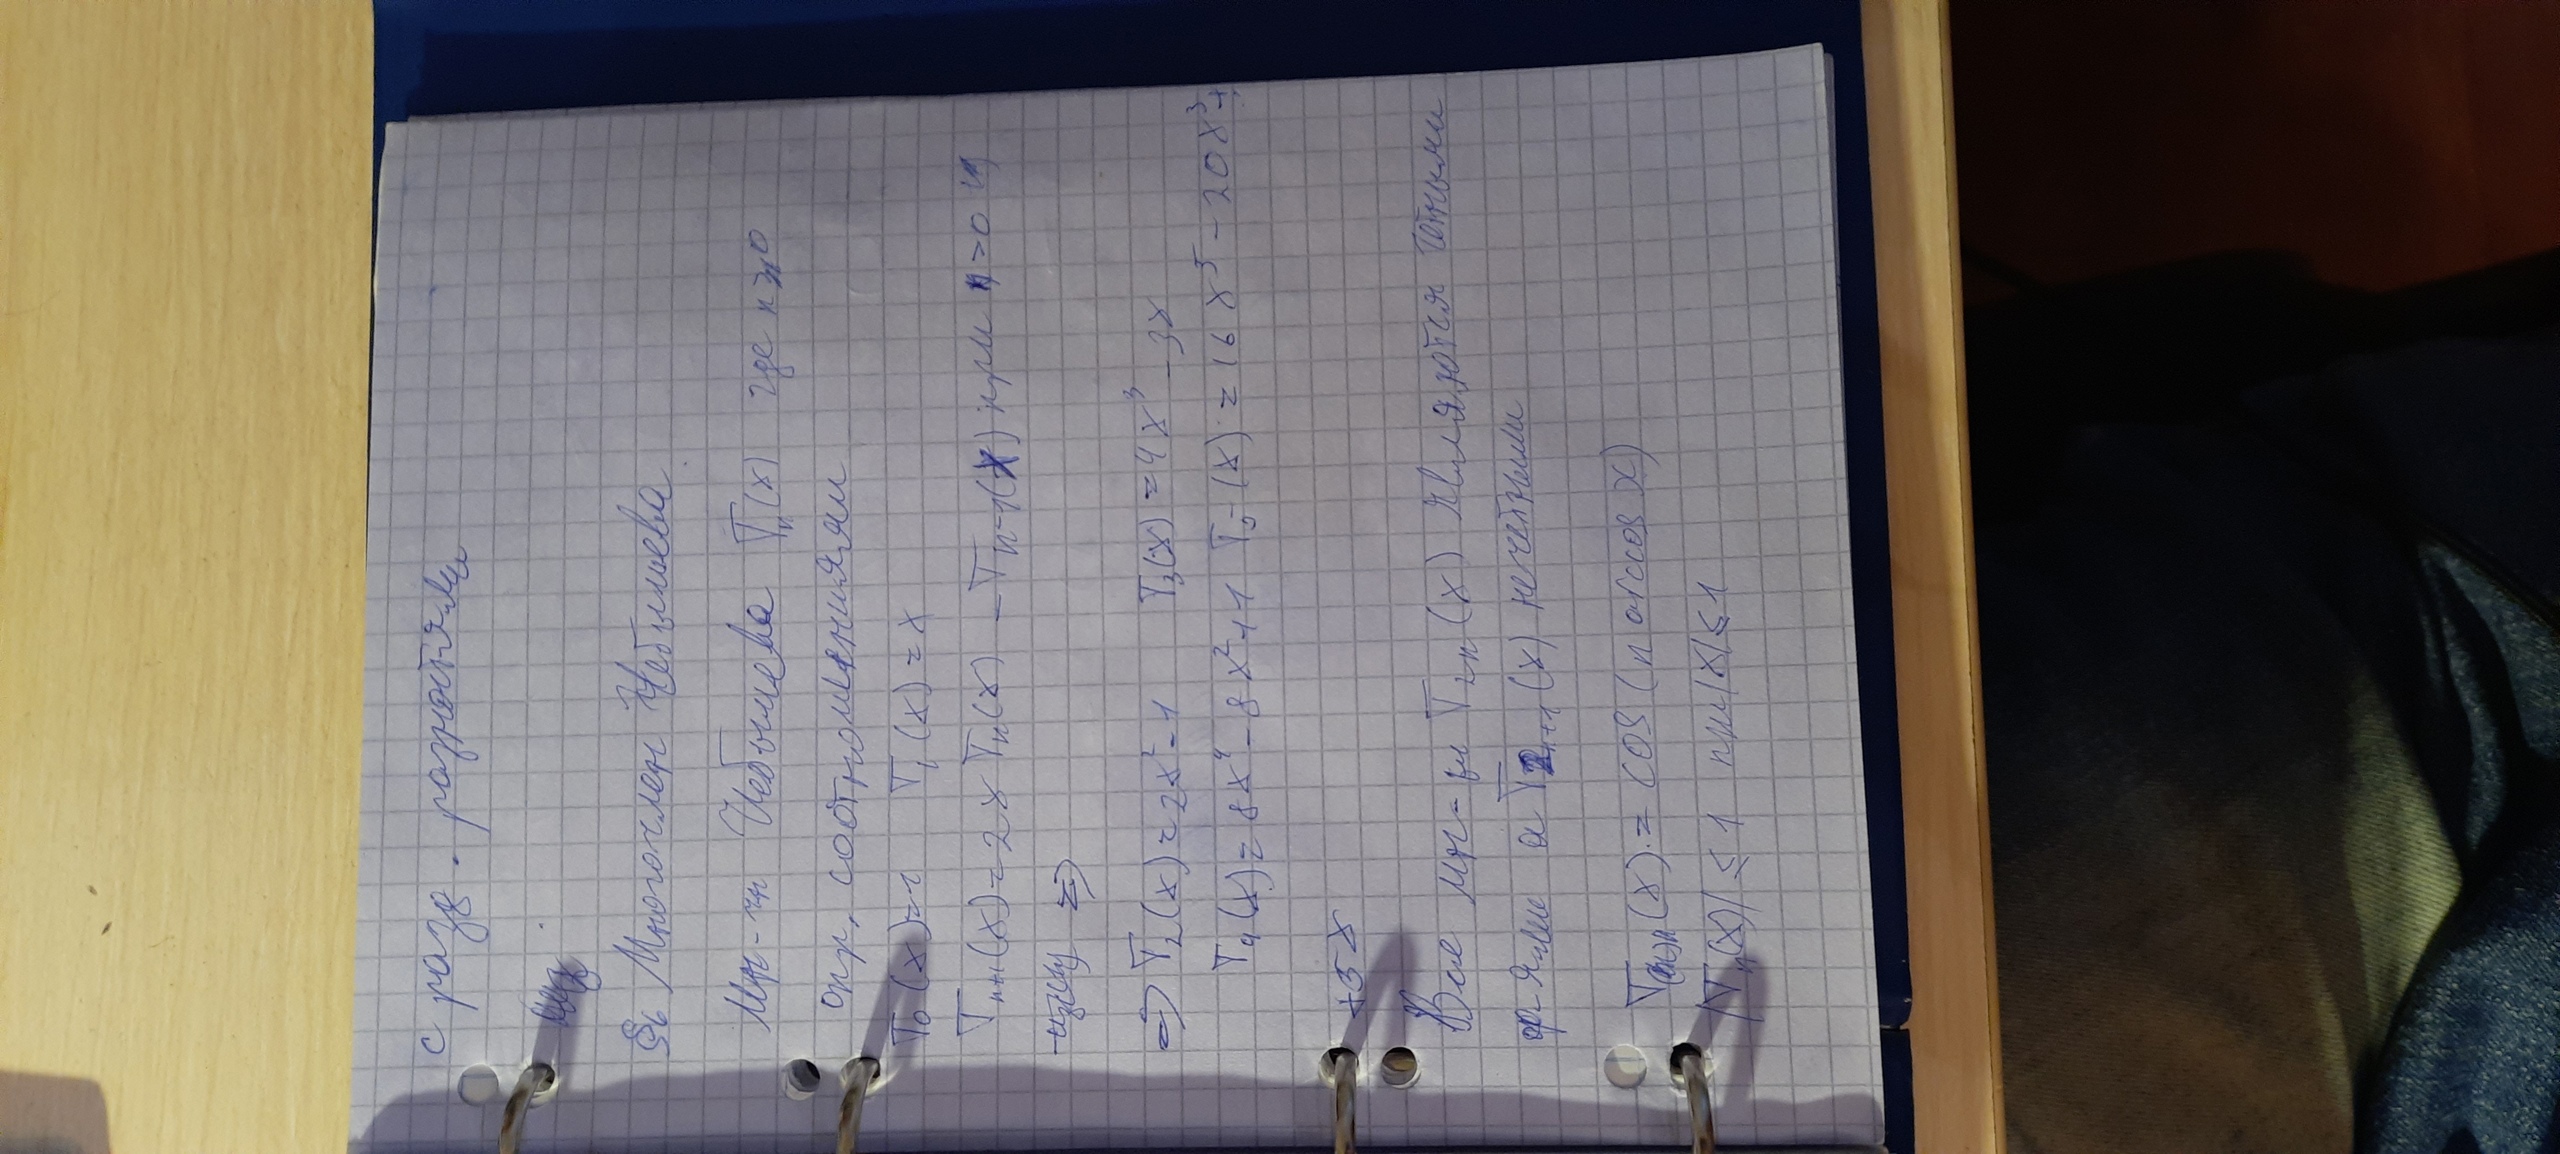 с разд. разностями
§6 Многочлен Чебышева
Мн-чн Чебышева Tₙ(x) где n≥0
опр. соотношениями
T₀(x)=1 T₁(x)=x
Tₙ₊₁(x)=2xTₙ(x)-Tₙ₋₁(x) при n>0
=>
=> T₂(x)=2x²-1 T₃(x)=4x³-3x
T₄(x)=8x⁴-8x²+1 T₅(x)=16x⁵-20x³+
+5x
Все мн-ны T₂ₙ(x) являются чётными
а T₂ₙ₊₁(x) нечетными
Tₙ(x)=cos(n arccos x)
|Tₙ(x)|≤1 при |x|≤1